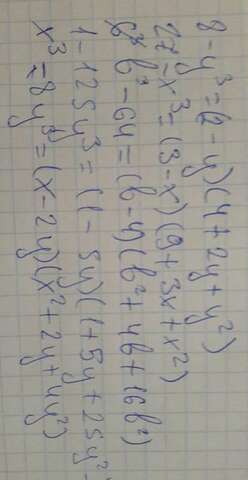 8-y³=(2-y)(4+2y+y²)
27-x³=(3-x)(9+3x+x²)
b³-64=(b-4)(b²+4b+16b²)
1-125y³=(1-5y)(1+5y+25y²)
x³-8y³=(x-2y)(x²+2y+4y²)